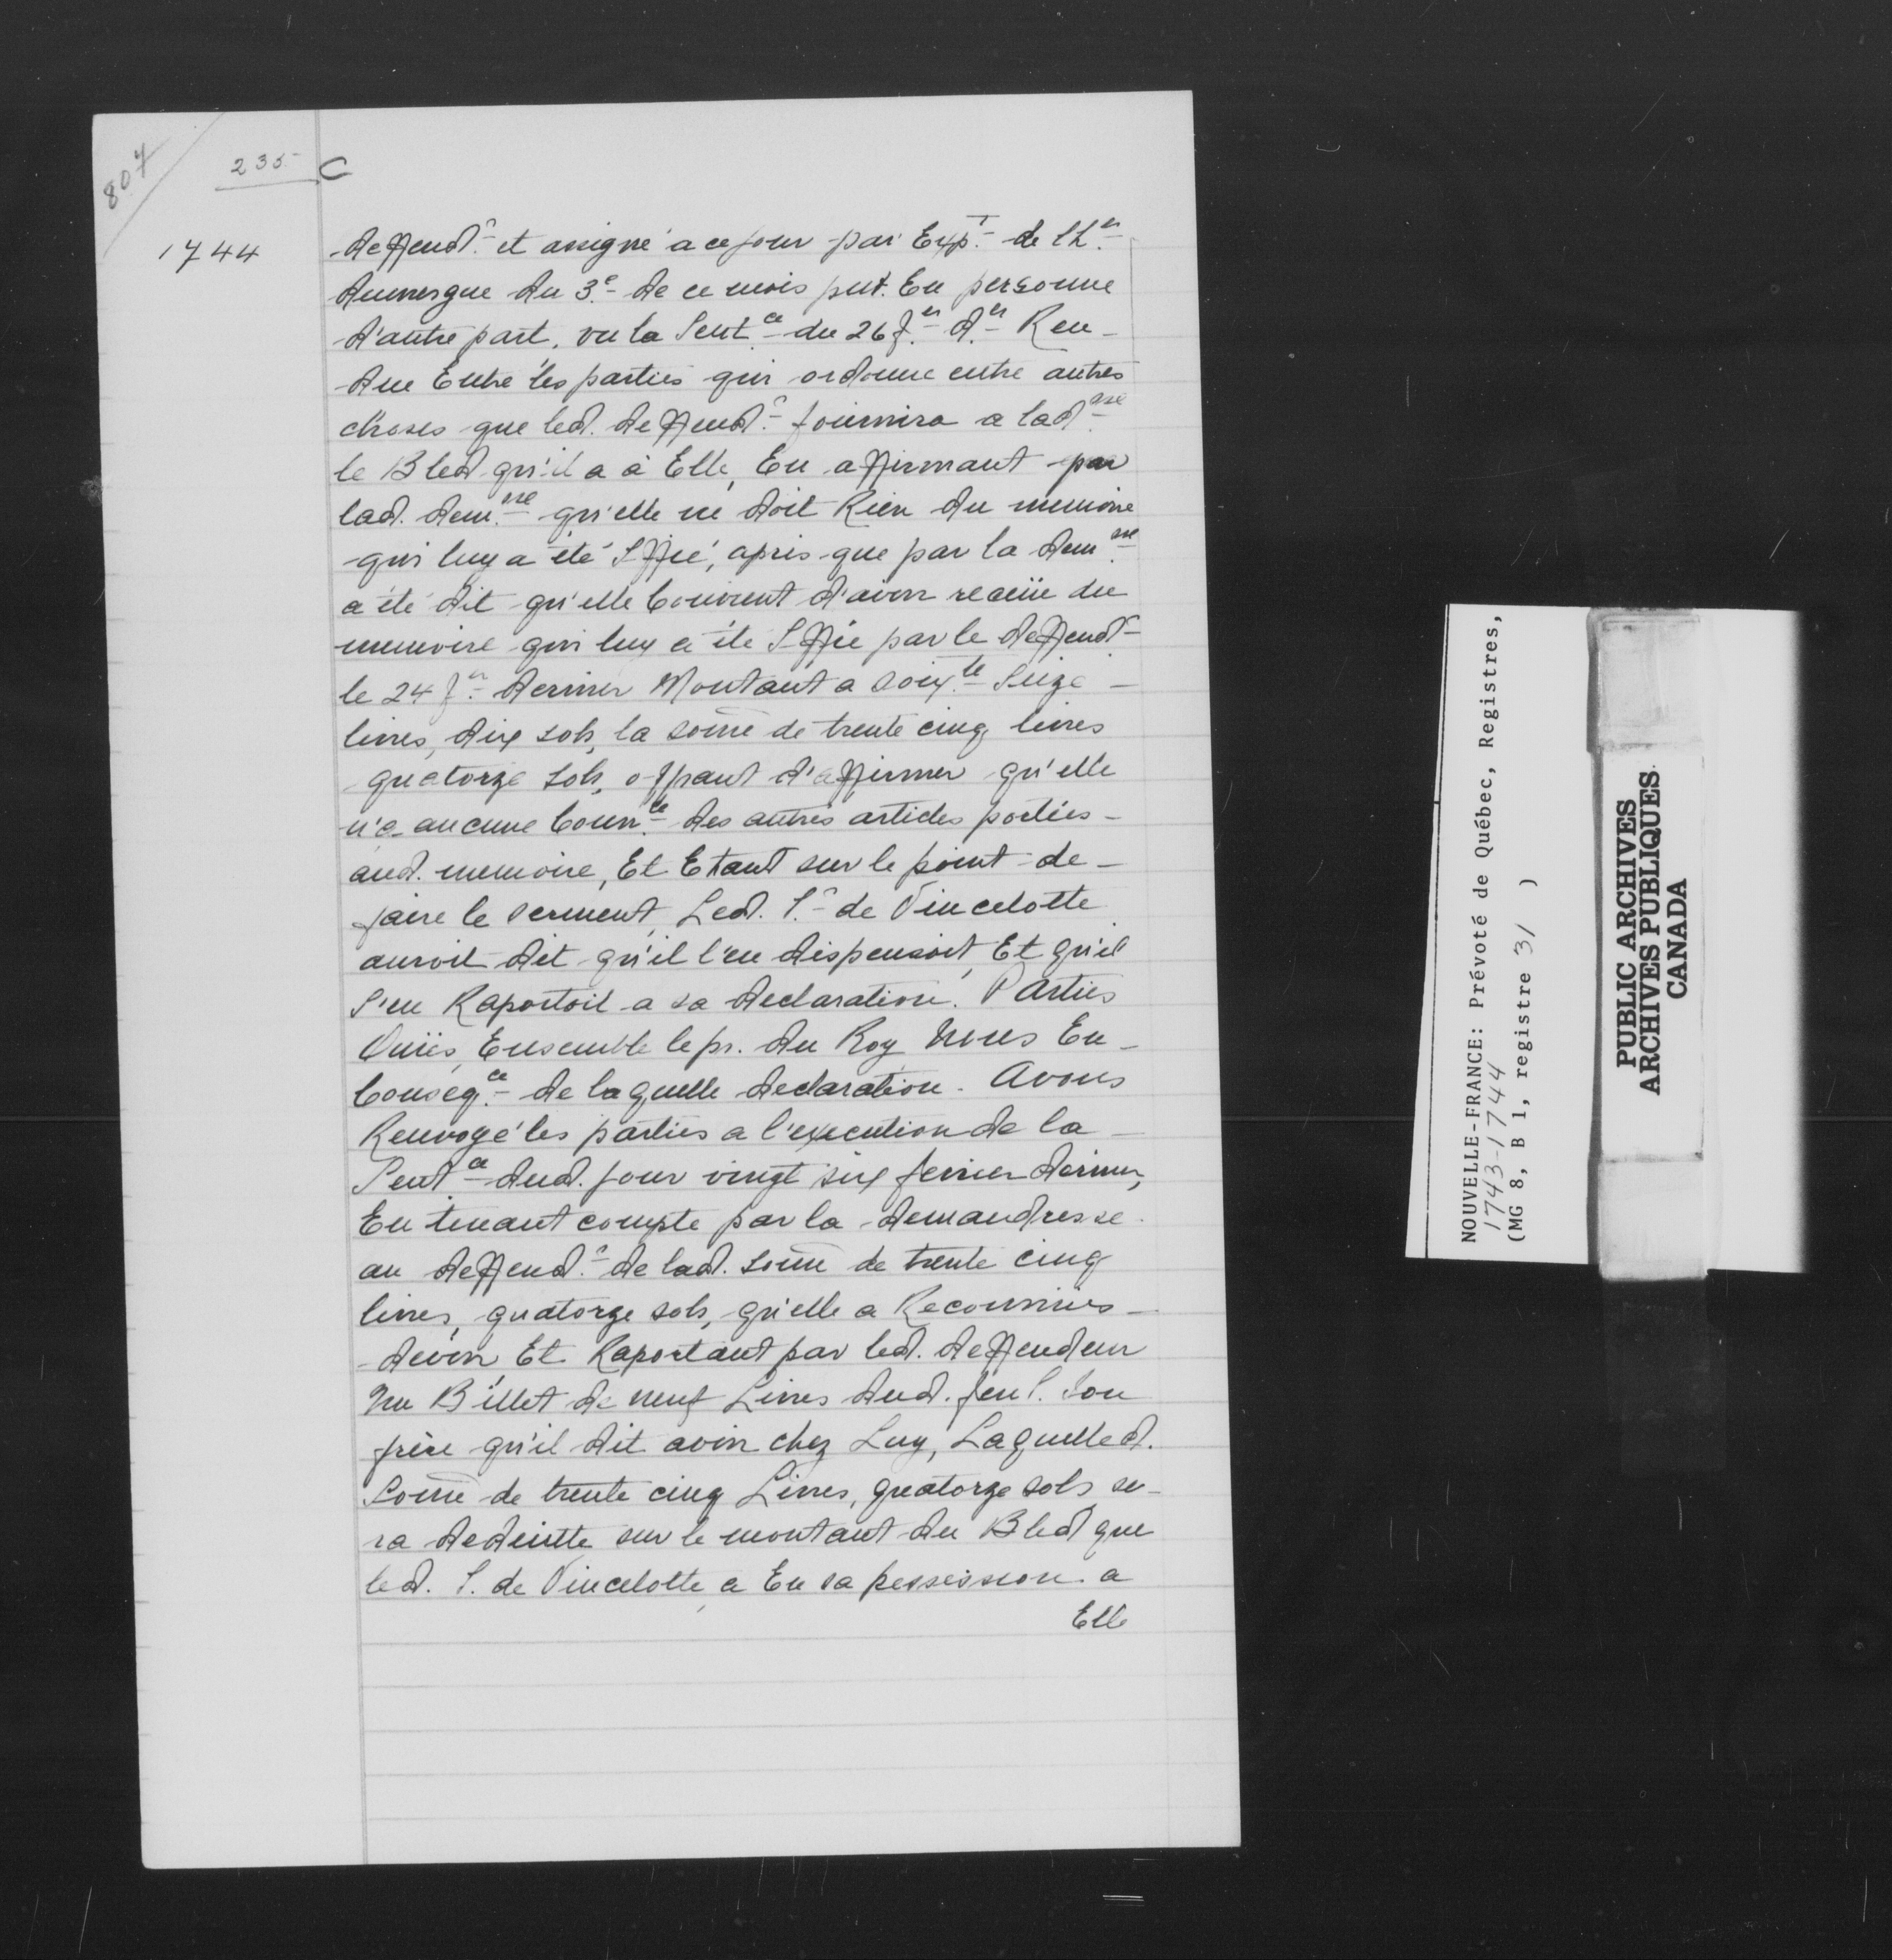 807
235
C
1744
deffend.r et assigné a ce jour par Exp.t de l'h.er
dumergue du 3.e de ce mois pnt. En personne
d'autre part, vu la Sent.ce du 26 f.er d.er Ren-
due Entre les parties qui ordonne entre autres
choses que led. deffend.r fournira a lad.
le Bled qu'il a à Elle, En affirmant par
lad. dem.sse qu'elle ne doit Rien du memoire
qui luy a été Sffié, apris que par la dem.sse
a été dit qu'elle Convient d'avoir receüe du
memoire qui luy a été Sffié par le deffend.r
le 24 f.er dernier Montant a soix.te Seize
livres, dix sols, la some de trente cinq livres
quatorze sols, offrant d'affirmer qu'elle
n'a aucune Conn.ce des autres articles portées
aud. memoire, Et Etant sur le point de
faire le serment, Led. S.r de Vincelotte
auroit dit qu'il l'en dispensoit, Et qu'il
S'en Raportoit a sa declaration. Parties
Ouies, Ensemble le pr. du Roy Nous En
Conseq.ce de laquelle declaration. Avons
Renvoyé les parties a l'execution de la
Sent.ce dud. jour vingt six fevrier dernier,
En tenant compte par la demandresse
au deffend.r de lad. some de trente cinq
livres, quatorze sols, qu'elle a Reconnües
devoir, Et Raportant par led. deffendeur
Un Billet de neuf Livres dud. feu S. Son
frère qu'il dit avoir chez Luy, Laquelled.
Some de trente cinq Livres, quatorze sols se-
ra deduitte sur le montant du Bled que
led. S. de Vincelotte a En sa possession a
Elle
NOUVELLE-FRANCE: Prévoté de Québec, Registres,
1743-1744
(MG 8, B 1, registre 31 )
PUBLIC ARCHIVES
ARCHIVES PUBLIQUES
CANADA